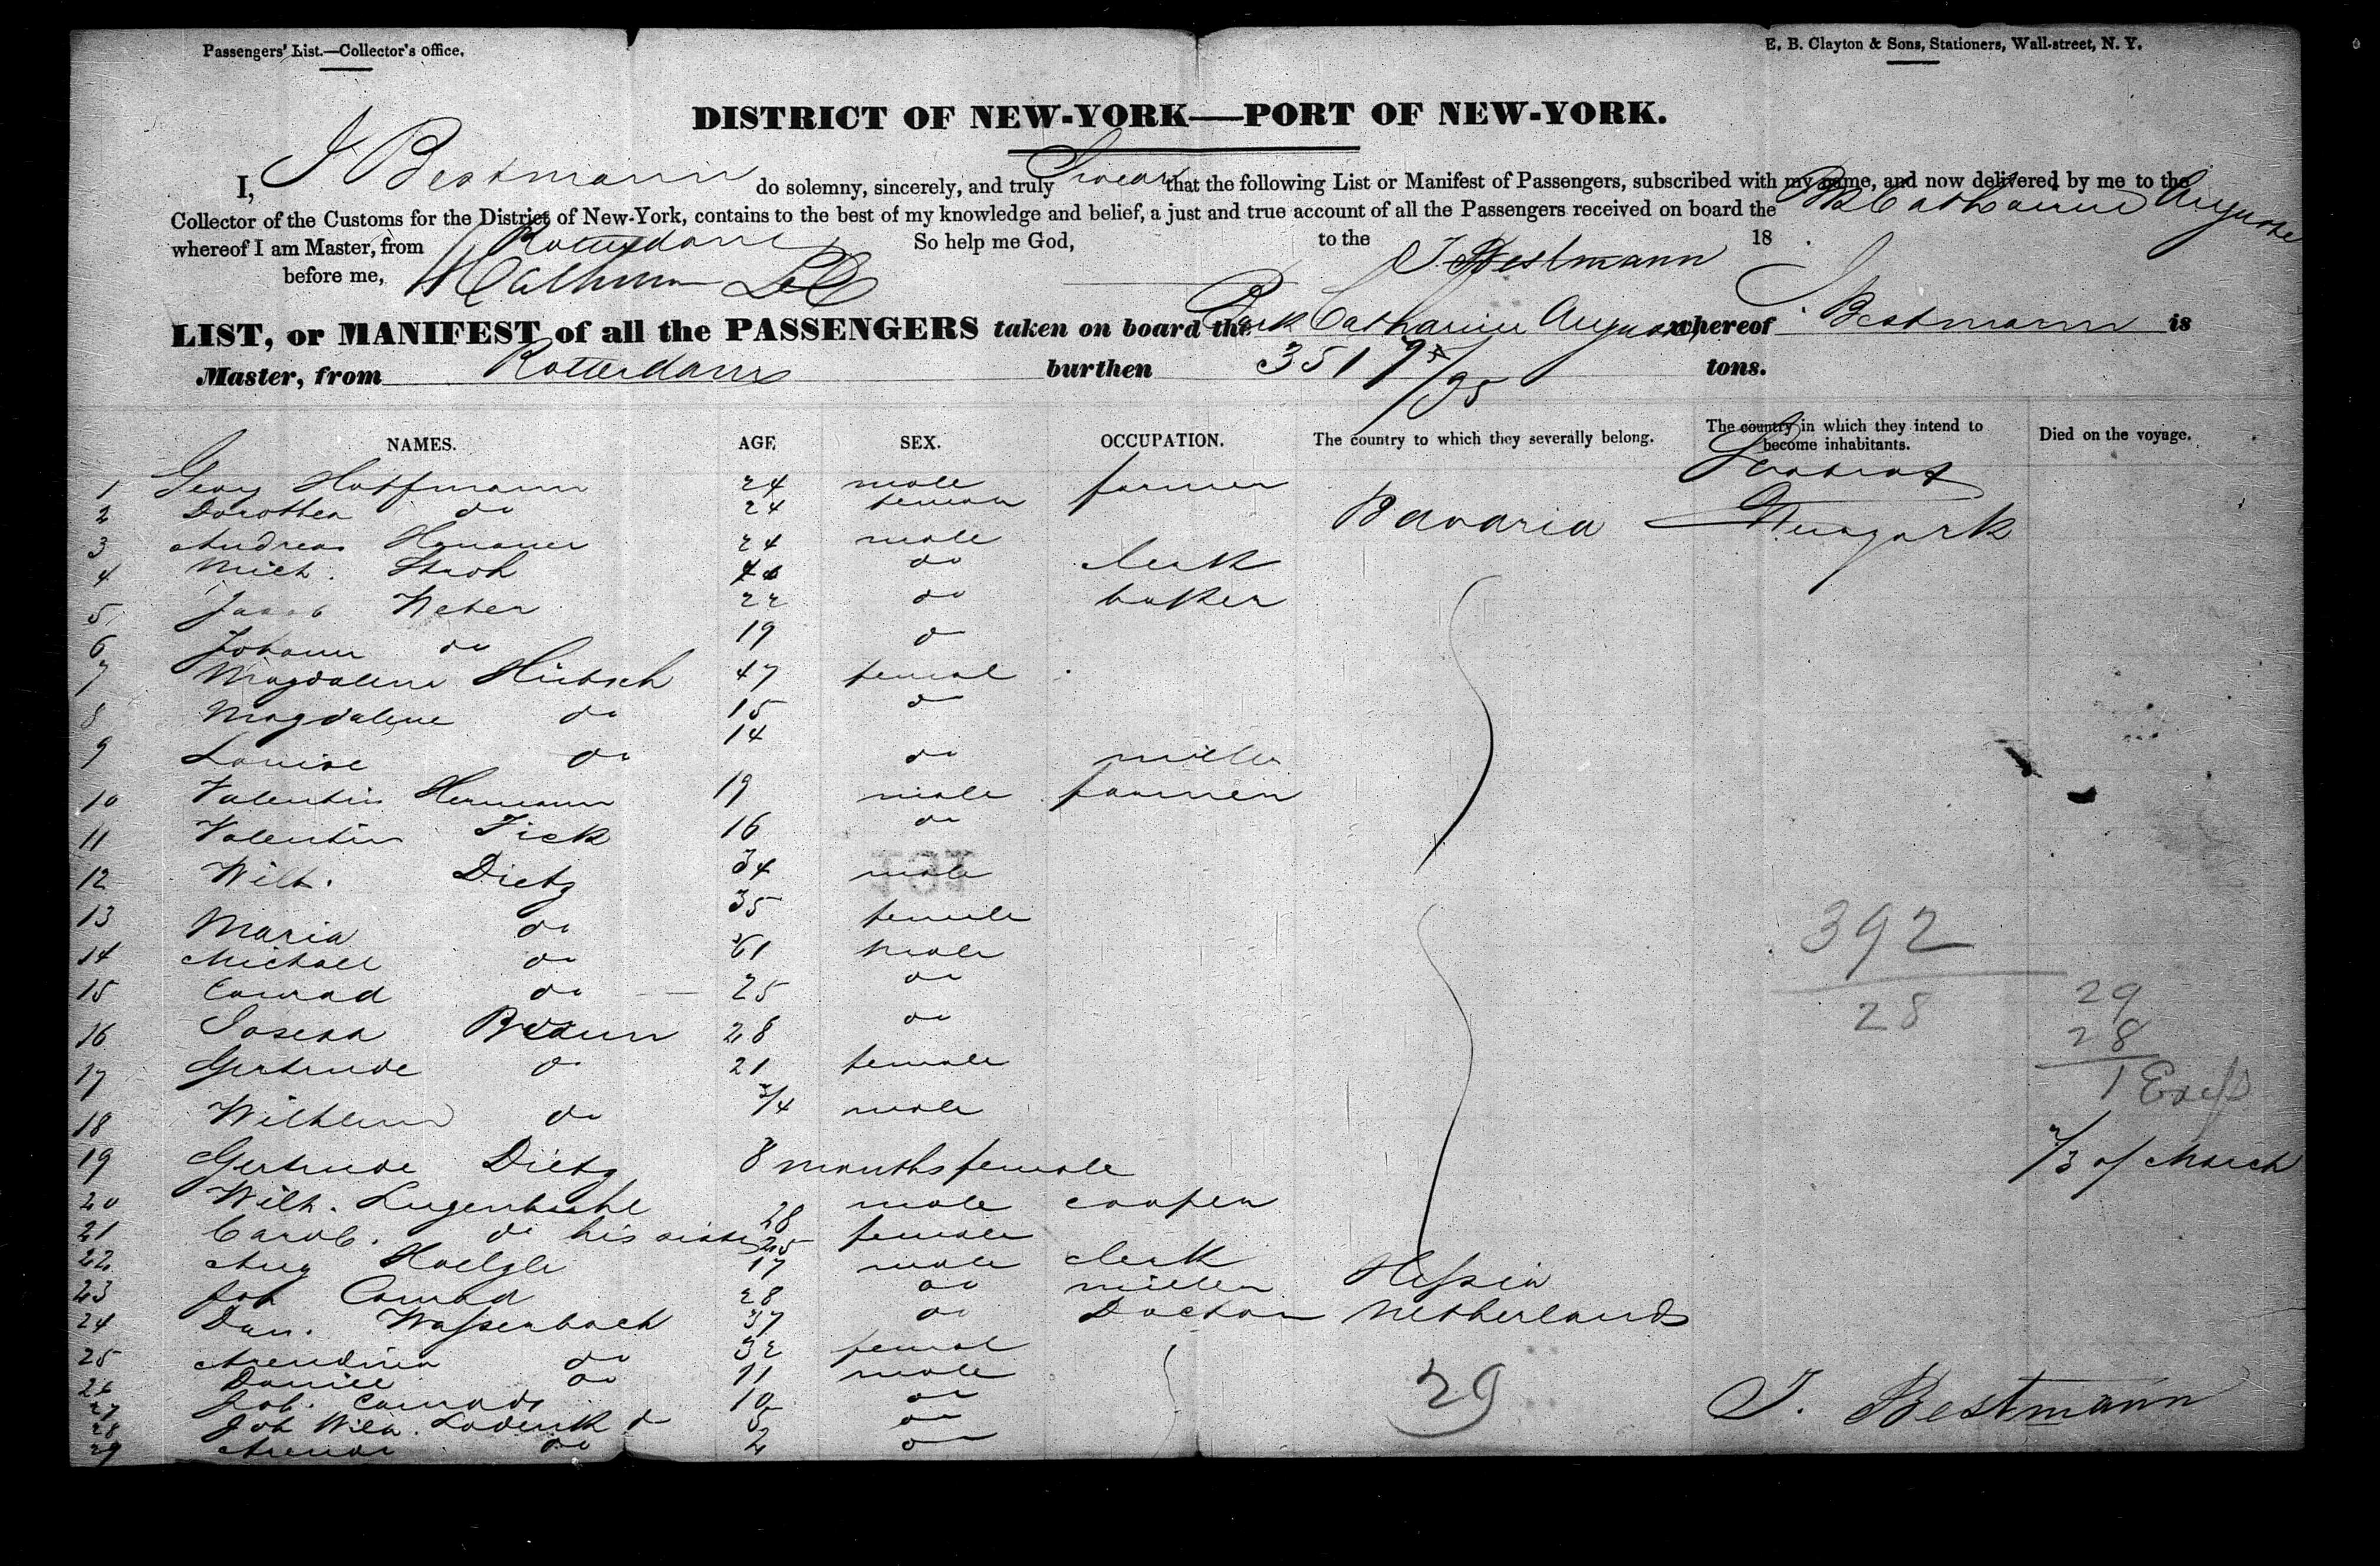 Passengers' List.—Collector's office.
E. B. Clayton & Sons, Stationers, Wall-street, N. Y.
DISTRICT OF NEW-YORK—PORT OF NEW-YORK.
I, J Bestmann do solemny, sincerely, and truly Swear that the following List or Manifest of Passengers, subscribed with my name, and now delivered by me to the
Collector of the Customs for the District of New-York, contains to the best of my knowledge and belief, a just and true account of all the Passengers received on board the Bk Catharine Auguste
whereof I am Master, from Rotterdam So help me God, to the J. Bestmann 18
before me,
LIST, or MANIFEST of all the PASSENGERS taken on board the Bark Catharine Augusta whereof J Bestmann is
Master, from Rotterdam burthen 351 75/95 tons.
NAMES. AGE SEX. OCCUPATION. The country to which they severally belong. The country in which they intend to become inhabitants. Died on the voyage.
1 Georg Hoffmann 24 male farmer
2 Dorothea do 24 female Bavaria Newyork
3 Andreas Hanauer 24 male
4 Mich. Stroh do clerk
5 Jacob Weber 22 do baker
6 Johann do 19 do
7 Magdalene Hübsch 47 femal
8 Magdalene do 15 do
9 Louise do 14 do miller
10 Valentin Hermann 19 male farmer
11 Valentin Fick 16 do
12 Wilh. Dietz 34 male
13 Maria do 35 female
14 Michael do 61 male
15 Conrad do 25 do
16 Joseph Braun 28 do
17 Gertrude do 21 female
18 Wilhelm do 3/4 male
19 Gertrude Dietz 8 months female
20 Wilh. Lugenbuhl 28 male cooper
21 Carol. do his sister 25 female
22 Aug Hoelzle 17 male clerk
23 Joh Conrad 28 do miller Hessia
24 Dan. Wassenbach 37 do Doctor Netherlands
25 Arendina do 32 femal
26 Daniel do 11 male
27 Joh. Conrad do 10 do
28 Joh Wilh. Loderik do 5 do
29 do 2 do
392
28
29
28
1 Excess
2/3 of March
29
J. Bestmann